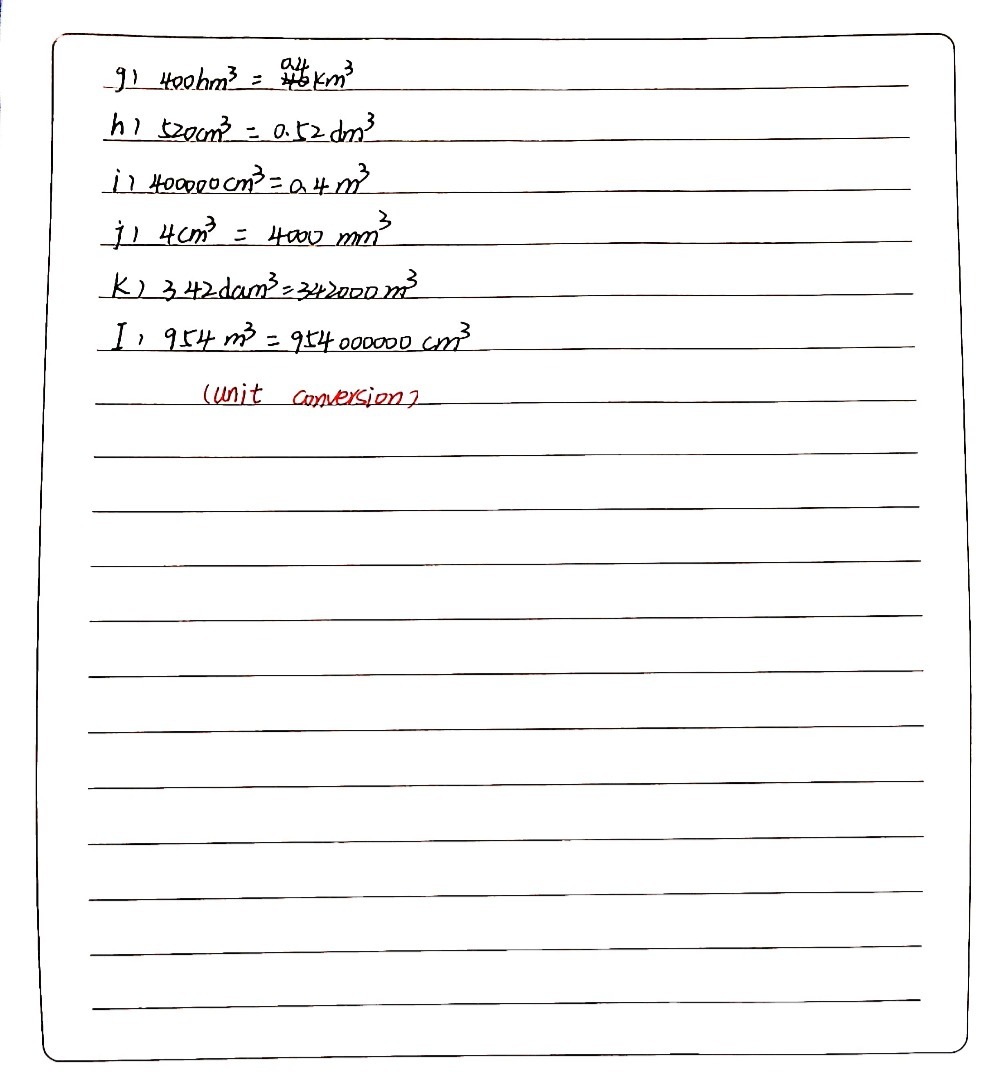 g) 400hm³ = 0.4 km³
h) 520cm³ = 0.52 dm³
i) 400000cm³ = 0.4 m³
j) 4cm³ = 4000 mm³
k) 342dam³ = 342000 m³
I) 954 m³ = 954000000 cm³
(unit conversion)